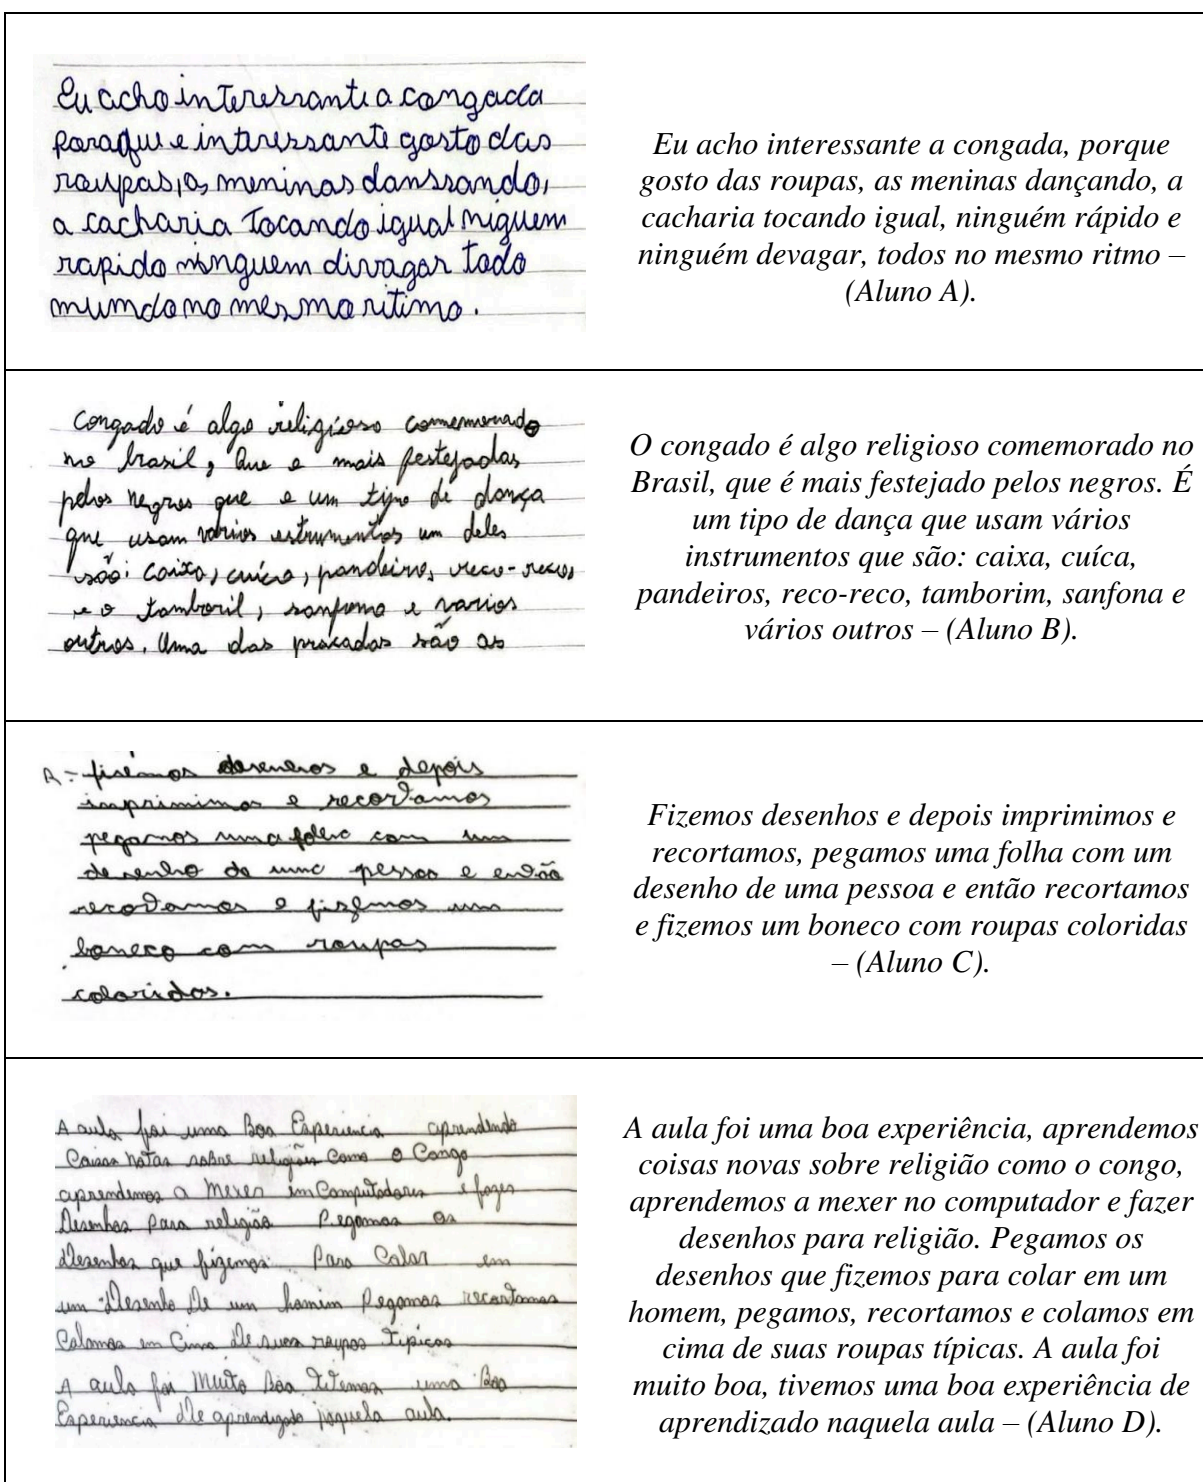 Eu acho interessante a congada
paraque e interessante gosto das
roupas, as meninas danssando,
a cacharia Tocando igual niguem
rapido ninguem divagar todo
mumdo no mesmo ritimo.
Eu acho interessante a congada, porque
gosto das roupas, as meninas dançando, a
cacharia tocando igual, ninguém rápido e
ninguém devagar, todos no mesmo ritmo –
(Aluno A).
Congado é algo religioso comemorado
no brasil, que e mais festejadas
pelos negros que e um tipo de dança
que usam varios estrumentos um deles
são: caixa, cuíca, pandeiros, reco-recos
e o tamboril, sanfona e varios
outros. Uma das são as
O congado é algo religioso comemorado no
Brasil, que é mais festejado pelos negros. É
um tipo de dança que usam vários
instrumentos que são: caixa, cuíca,
pandeiros, reco-reco, tamborim, sanfona e
vários outros – (Aluno B).
R= fisemos desenhos e depois
imprimimos e recortamos
pegamos uma folha com um
desenho de uma pessoa e então
recortamos e fizemos um
boneco com roupas
coloridas.
Fizemos desenhos e depois imprimimos e
recortamos, pegamos uma folha com um
desenho de uma pessoa e então recortamos
e fizemos um boneco com roupas coloridas
– (Aluno C).
A aula foi uma Boa Experiencia aprendendo
Coisas sobre religião Como o Congo
aprendemos a Mexer em Computadores e fazer
Desenhos Para religião Pegamos os
Desenhos que fizemos Para Colar em
um Desenho De um homim Pegamos recortamos
Colamos em Cima de suas roupas Tipicas
A aula foi Muito Boa Tivemos uma Boa
Experiencia de aprendizado naquela aula.
A aula foi uma boa experiência, aprendemos
coisas novas sobre religião como o congo,
aprendemos a mexer no computador e fazer
desenhos para religião. Pegamos os
desenhos que fizemos para colar em um
homem, pegamos, recortamos e colamos em
cima de suas roupas típicas. A aula foi
muito boa, tivemos uma boa experiência de
aprendizado naquela aula – (Aluno D).